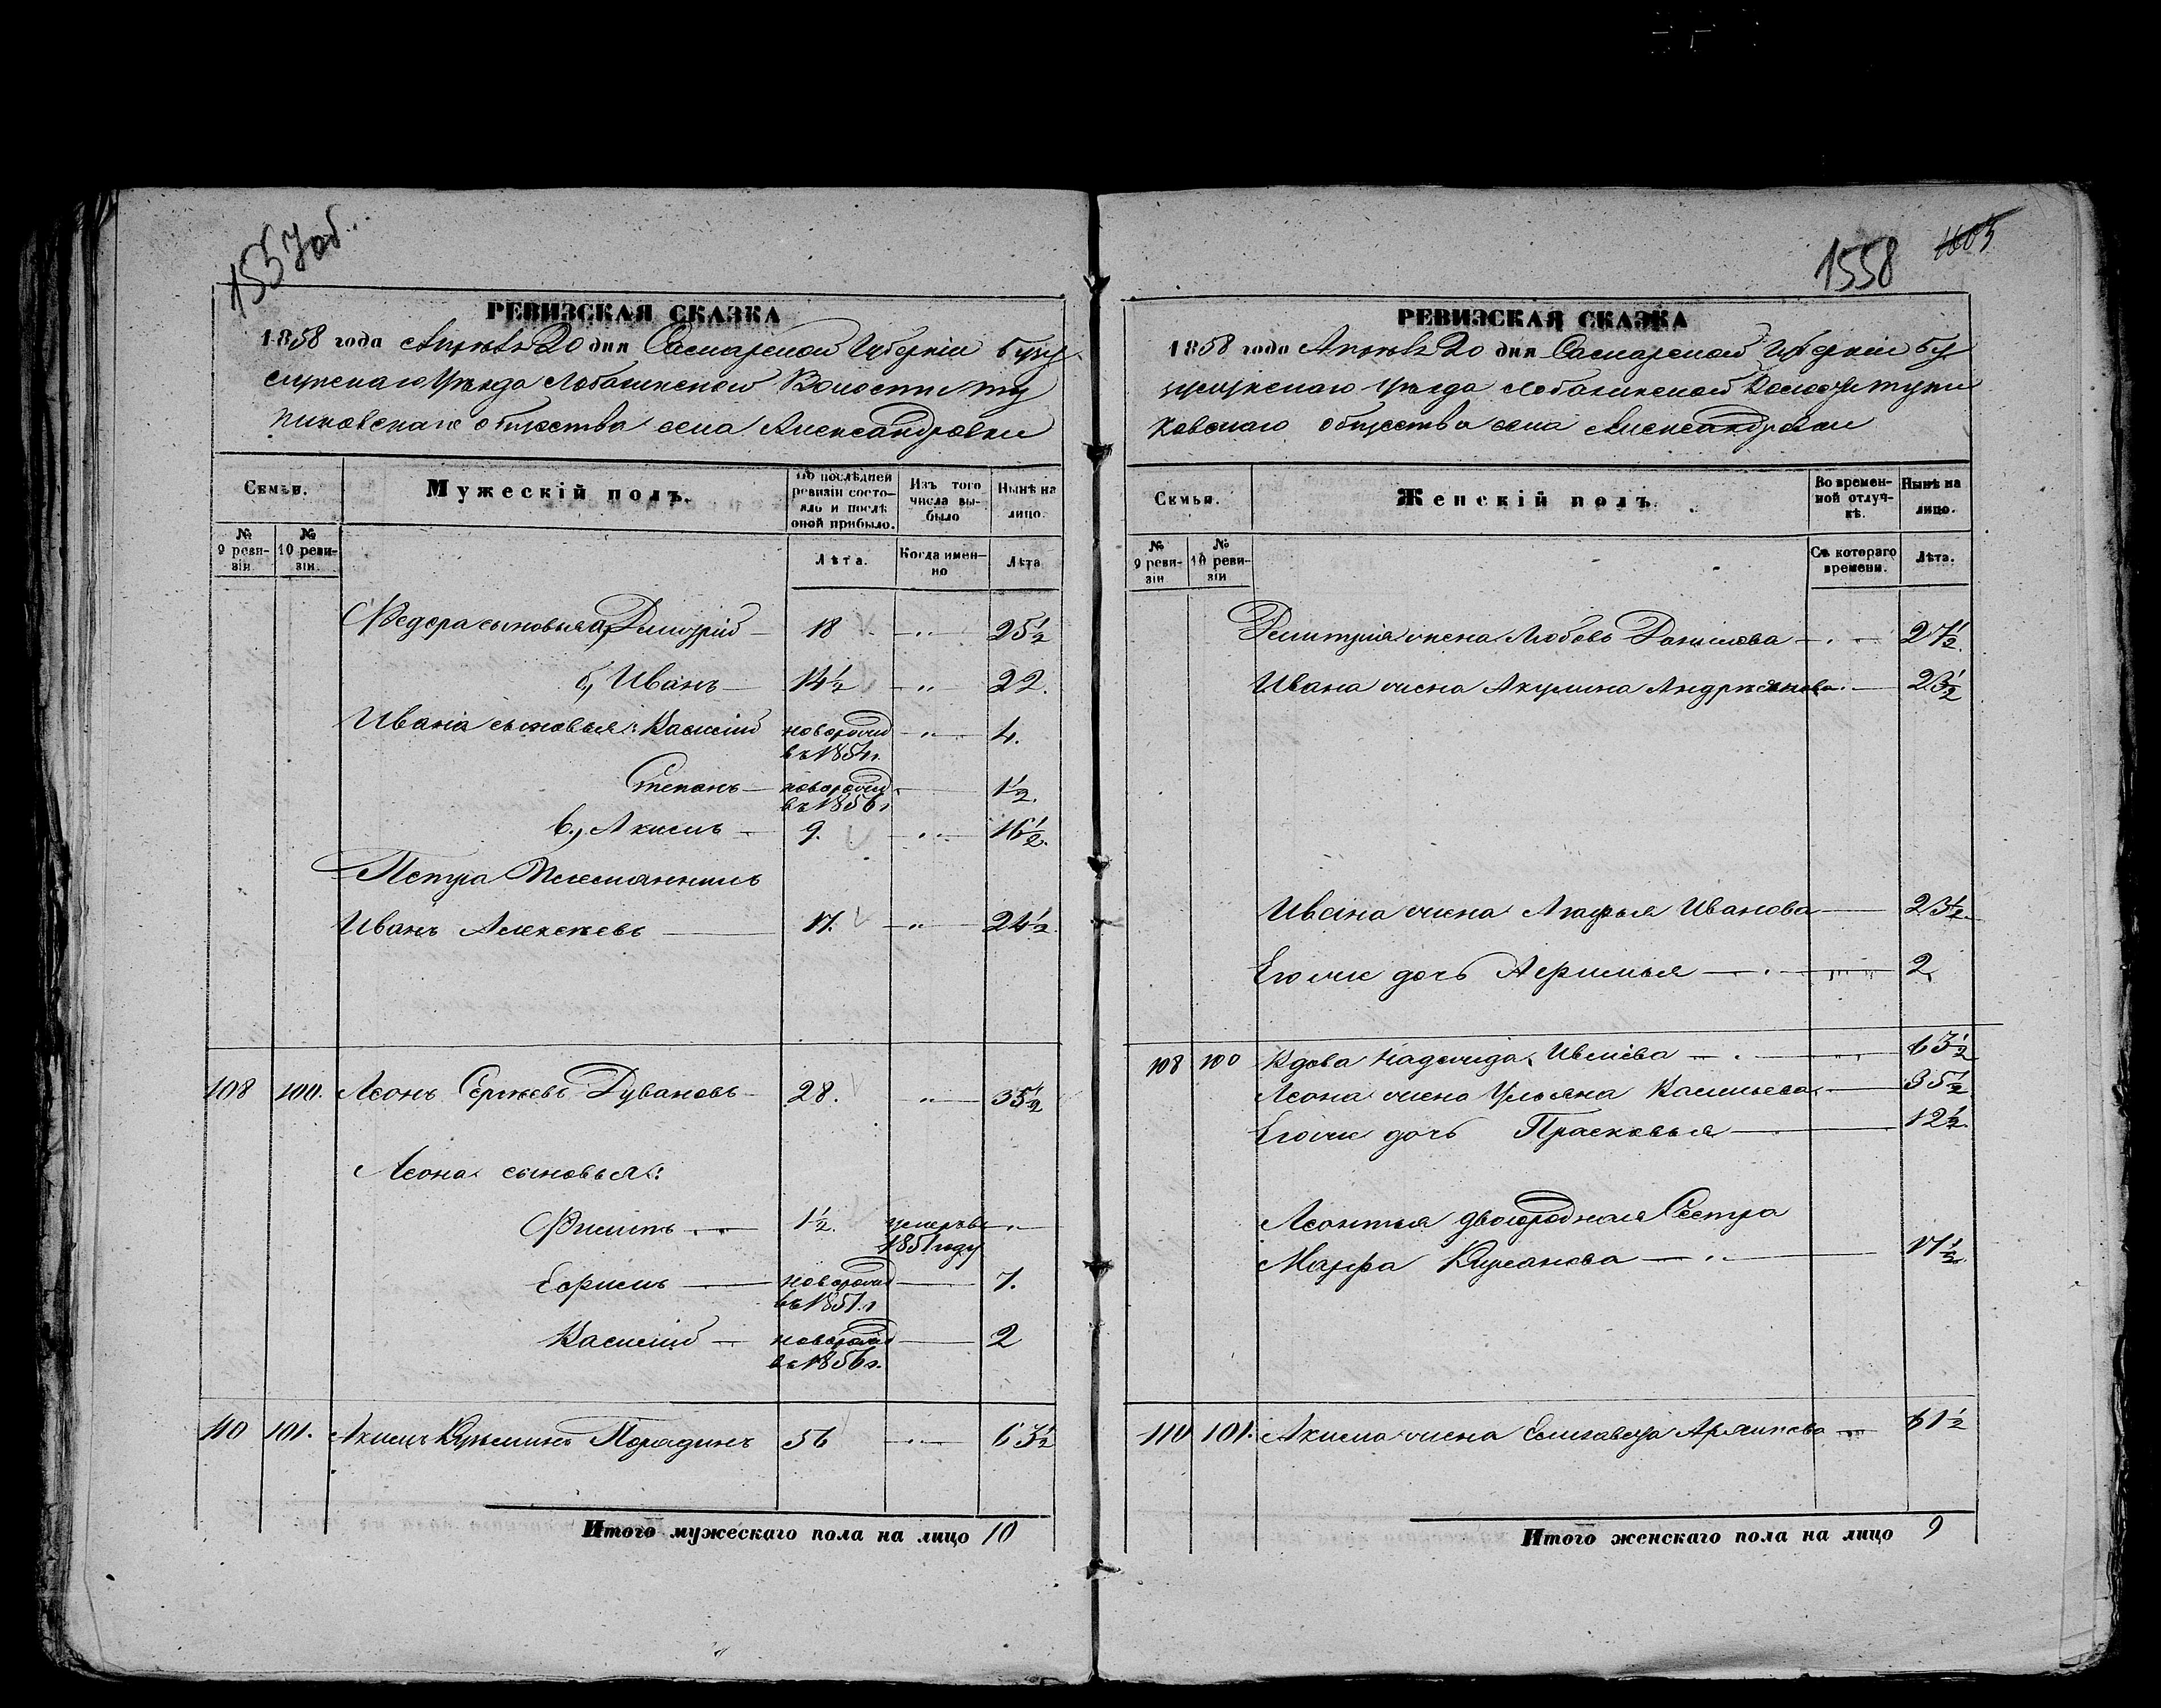 1557об.
РЕВИЗСКАЯ СКАЗКА
1858 года Апрѣля 20 дня Самарской Губерніи Бугу
сунскаго Уѣзда Лобазинской Волости
пиковскаго общества села Александровки
Семьи.
Мужескій полъ.
По послѣдней ревизіи состояло и послѣ оной прибыло.
Изъ того числа выбыло
Нынѣ на лицо.
№ 9 ревизіи.
№ 10 ревизіи.
Лѣта.
Когда именно
Лѣта
Федора сыновья а, Дмитрій 18 25½
б, Иванъ 14½ 22.
Ивана сыновья: Василій новорожд 4.
въ 1854г.
Степанъ новорожд 1½.
въ 1856г
в., Акимъ 9. 16½.
Петра Племянникъ
Иванъ Алексѣевъ 17. 24½.
108 100. Леонъ Сергѣевъ Дувановъ 28. 35½
Леона сыновья:
Филипъ 1½. умеръ въ
1851 году
Ефимъ новорожд 7.
въ 1851.г
Василій новорожд 2
въ 1856г.
110 101. Акимъ Кузьминъ Порадинъ 56 63½
Итого мужескаго пола на лицо 10
1558 1605
РЕВИЗСКАЯ СКАЗКА
1858 года Апрѣля 20 дня Самарской Губерніи Бу
гусунскаго Уѣзда Лобазинской Волости
ковскаго общества села Александровки
Семьи.
Женскій полъ.
Во временной отлучкѣ.
Нынѣ на лицо.
№ 9 ревизіи
№ 10 ревизіи
Съ котораго времени.
Лѣта.
Дмитрія жена Любовь Данилова 27½.
Ивана жена Акулина Андреянова. 23½
Ивана жена Агафья Иванова 23½.
Его же дочь Афимья 2.
108 100 Вдова Надежда Ивлева 63½
Леона жена Ульяна Васильева 35½
Его же дочь Прасковья 12½.
Леонтья двоюродная Сестра
Марфа 17½.
110 101. Акима жена Елизавета 61½
Итого женскаго пола на лицо 9